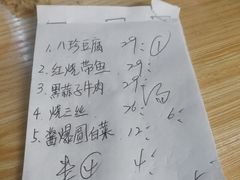 1、八珍豆腐 29: ①
2、红烧带鱼 29:
3、黑蒜子牛肉 29:
4、烧三丝 26: 6:
5、酱爆圆白菜 12:
④ 4: